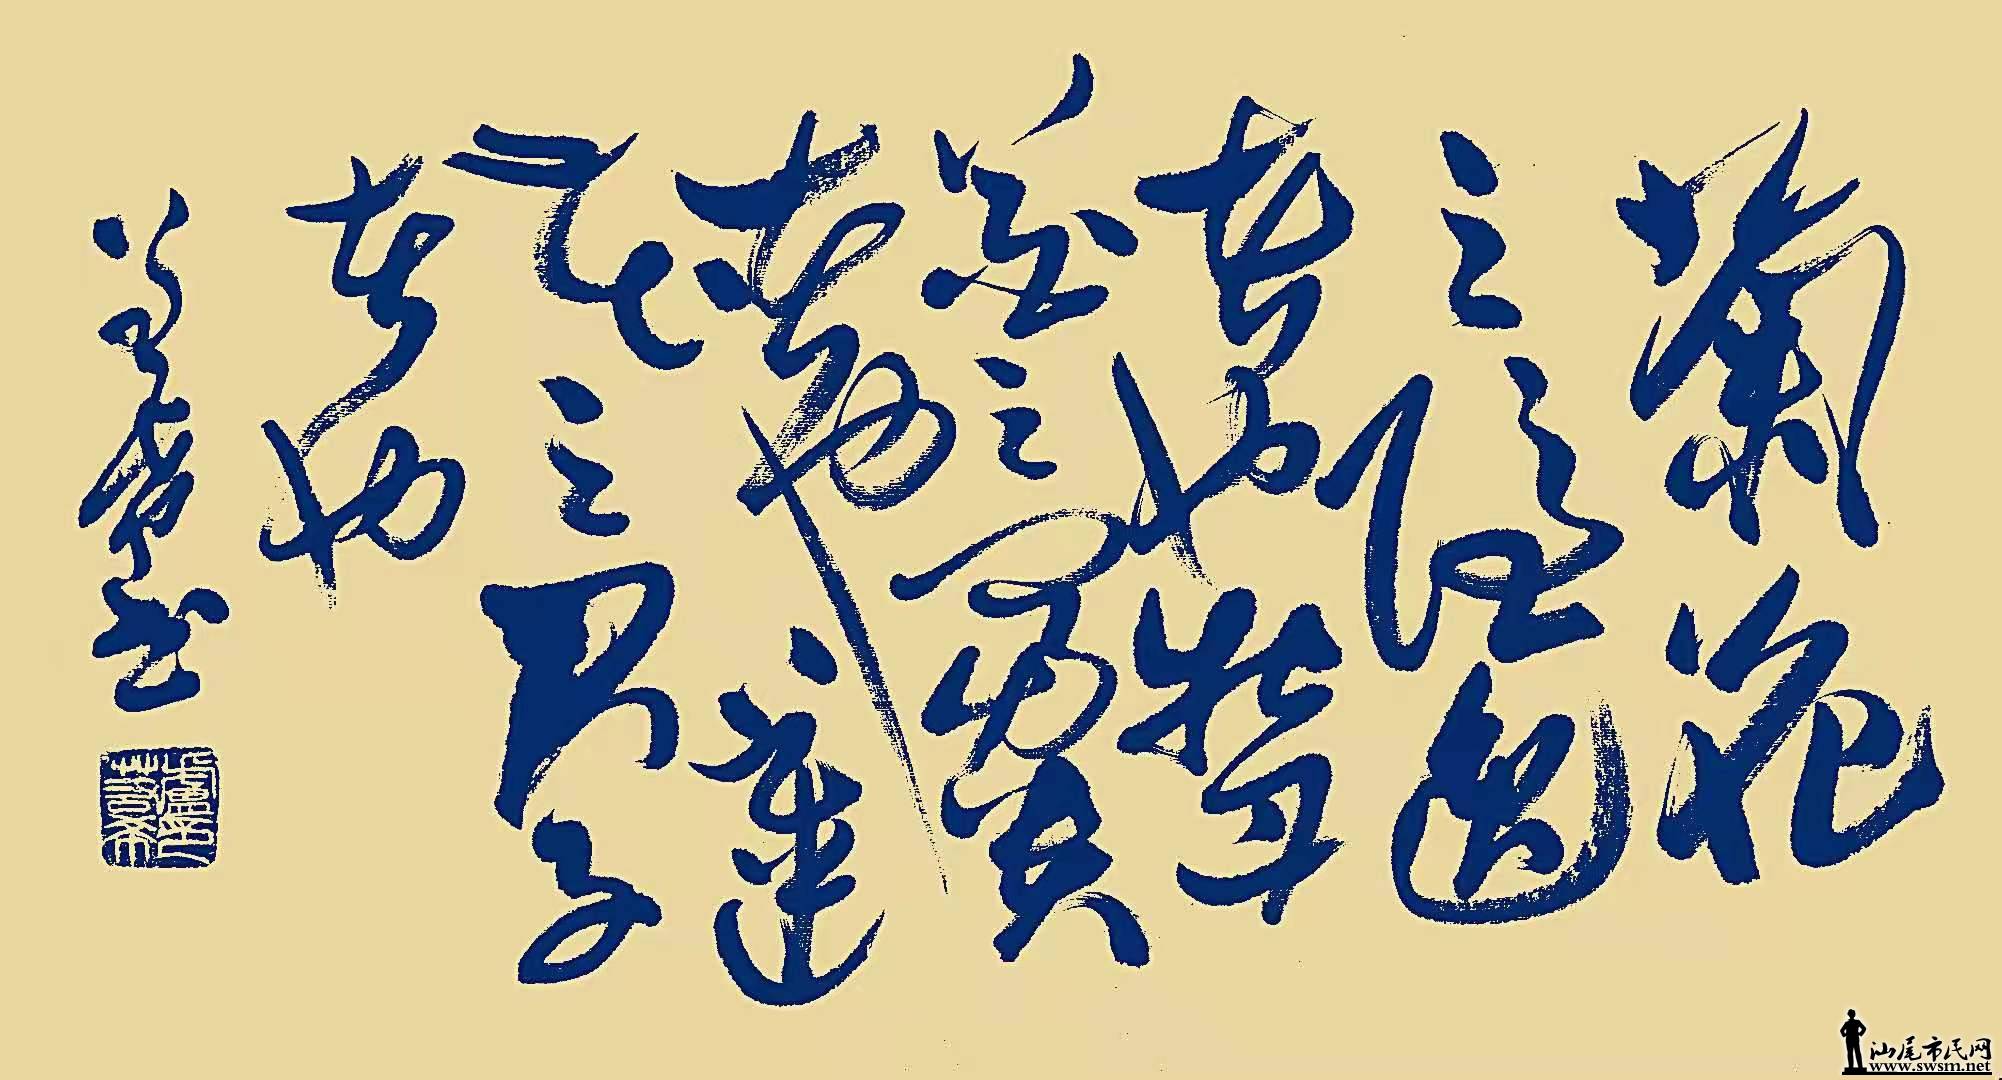 菊花
之隱逸
者也牡丹
花之富貴
者也蓮
花之君子
者也
汕尾市民网
www.swsm.net